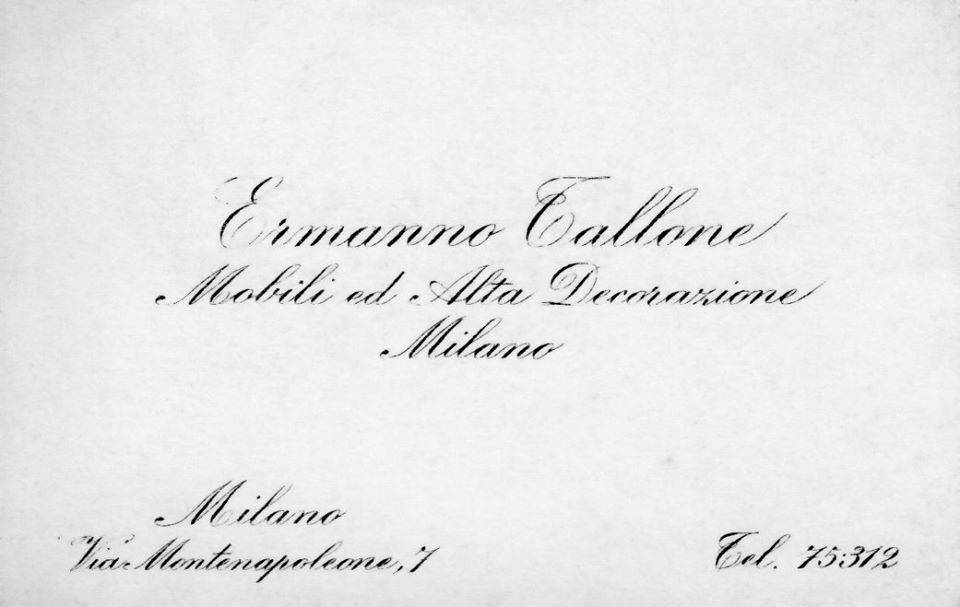 Ermanno Tallone
Mobili ed Alta Decorazione
Milano
Milano
Via Montenapoleone, 7
Tel. 75:312